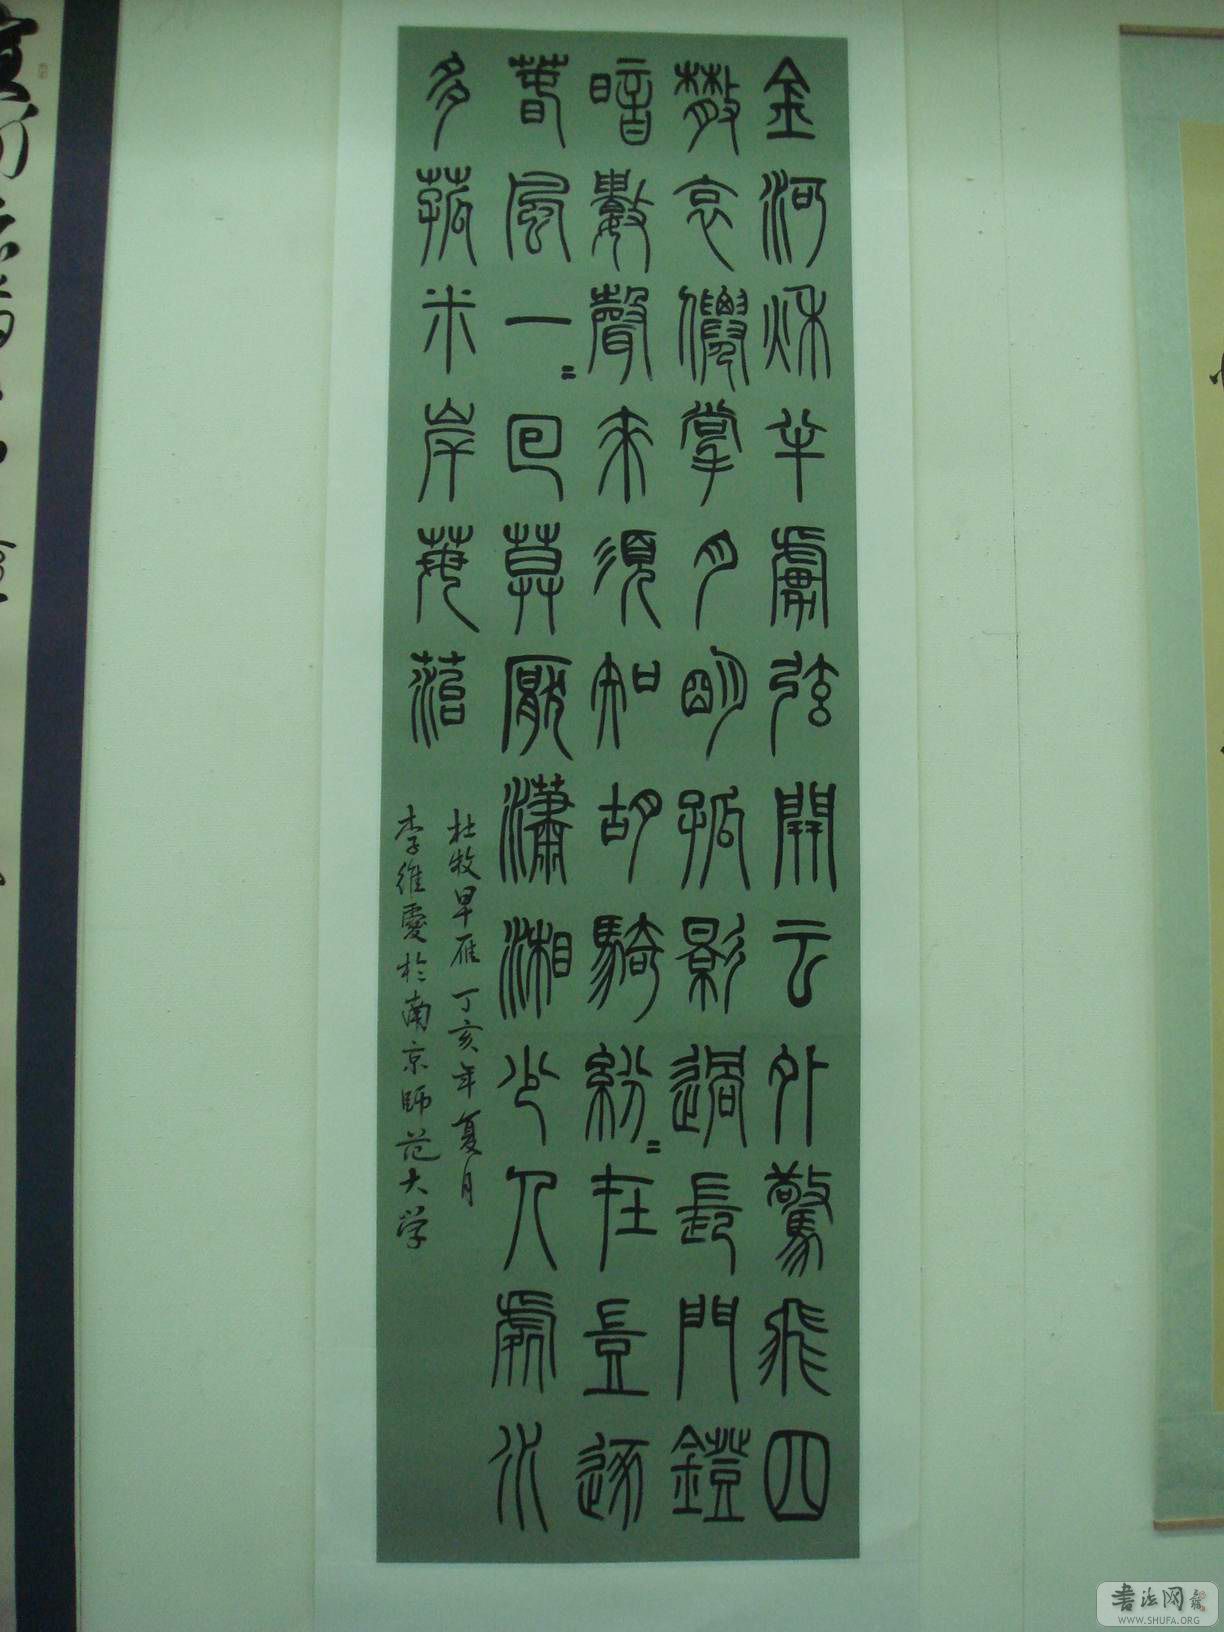 金河秋半虜弦開云外驚飛四
散哀僊掌月明孤影過長門鐙
暗數聲來須知胡騎紛〻在豈逐
春風一〻回莫厭瀟湘少人處水
多菰米岸莓菭
杜牧早雁 丁亥年夏月
李維於南京師范大学
书法网
WWW.SHUFA.ORG